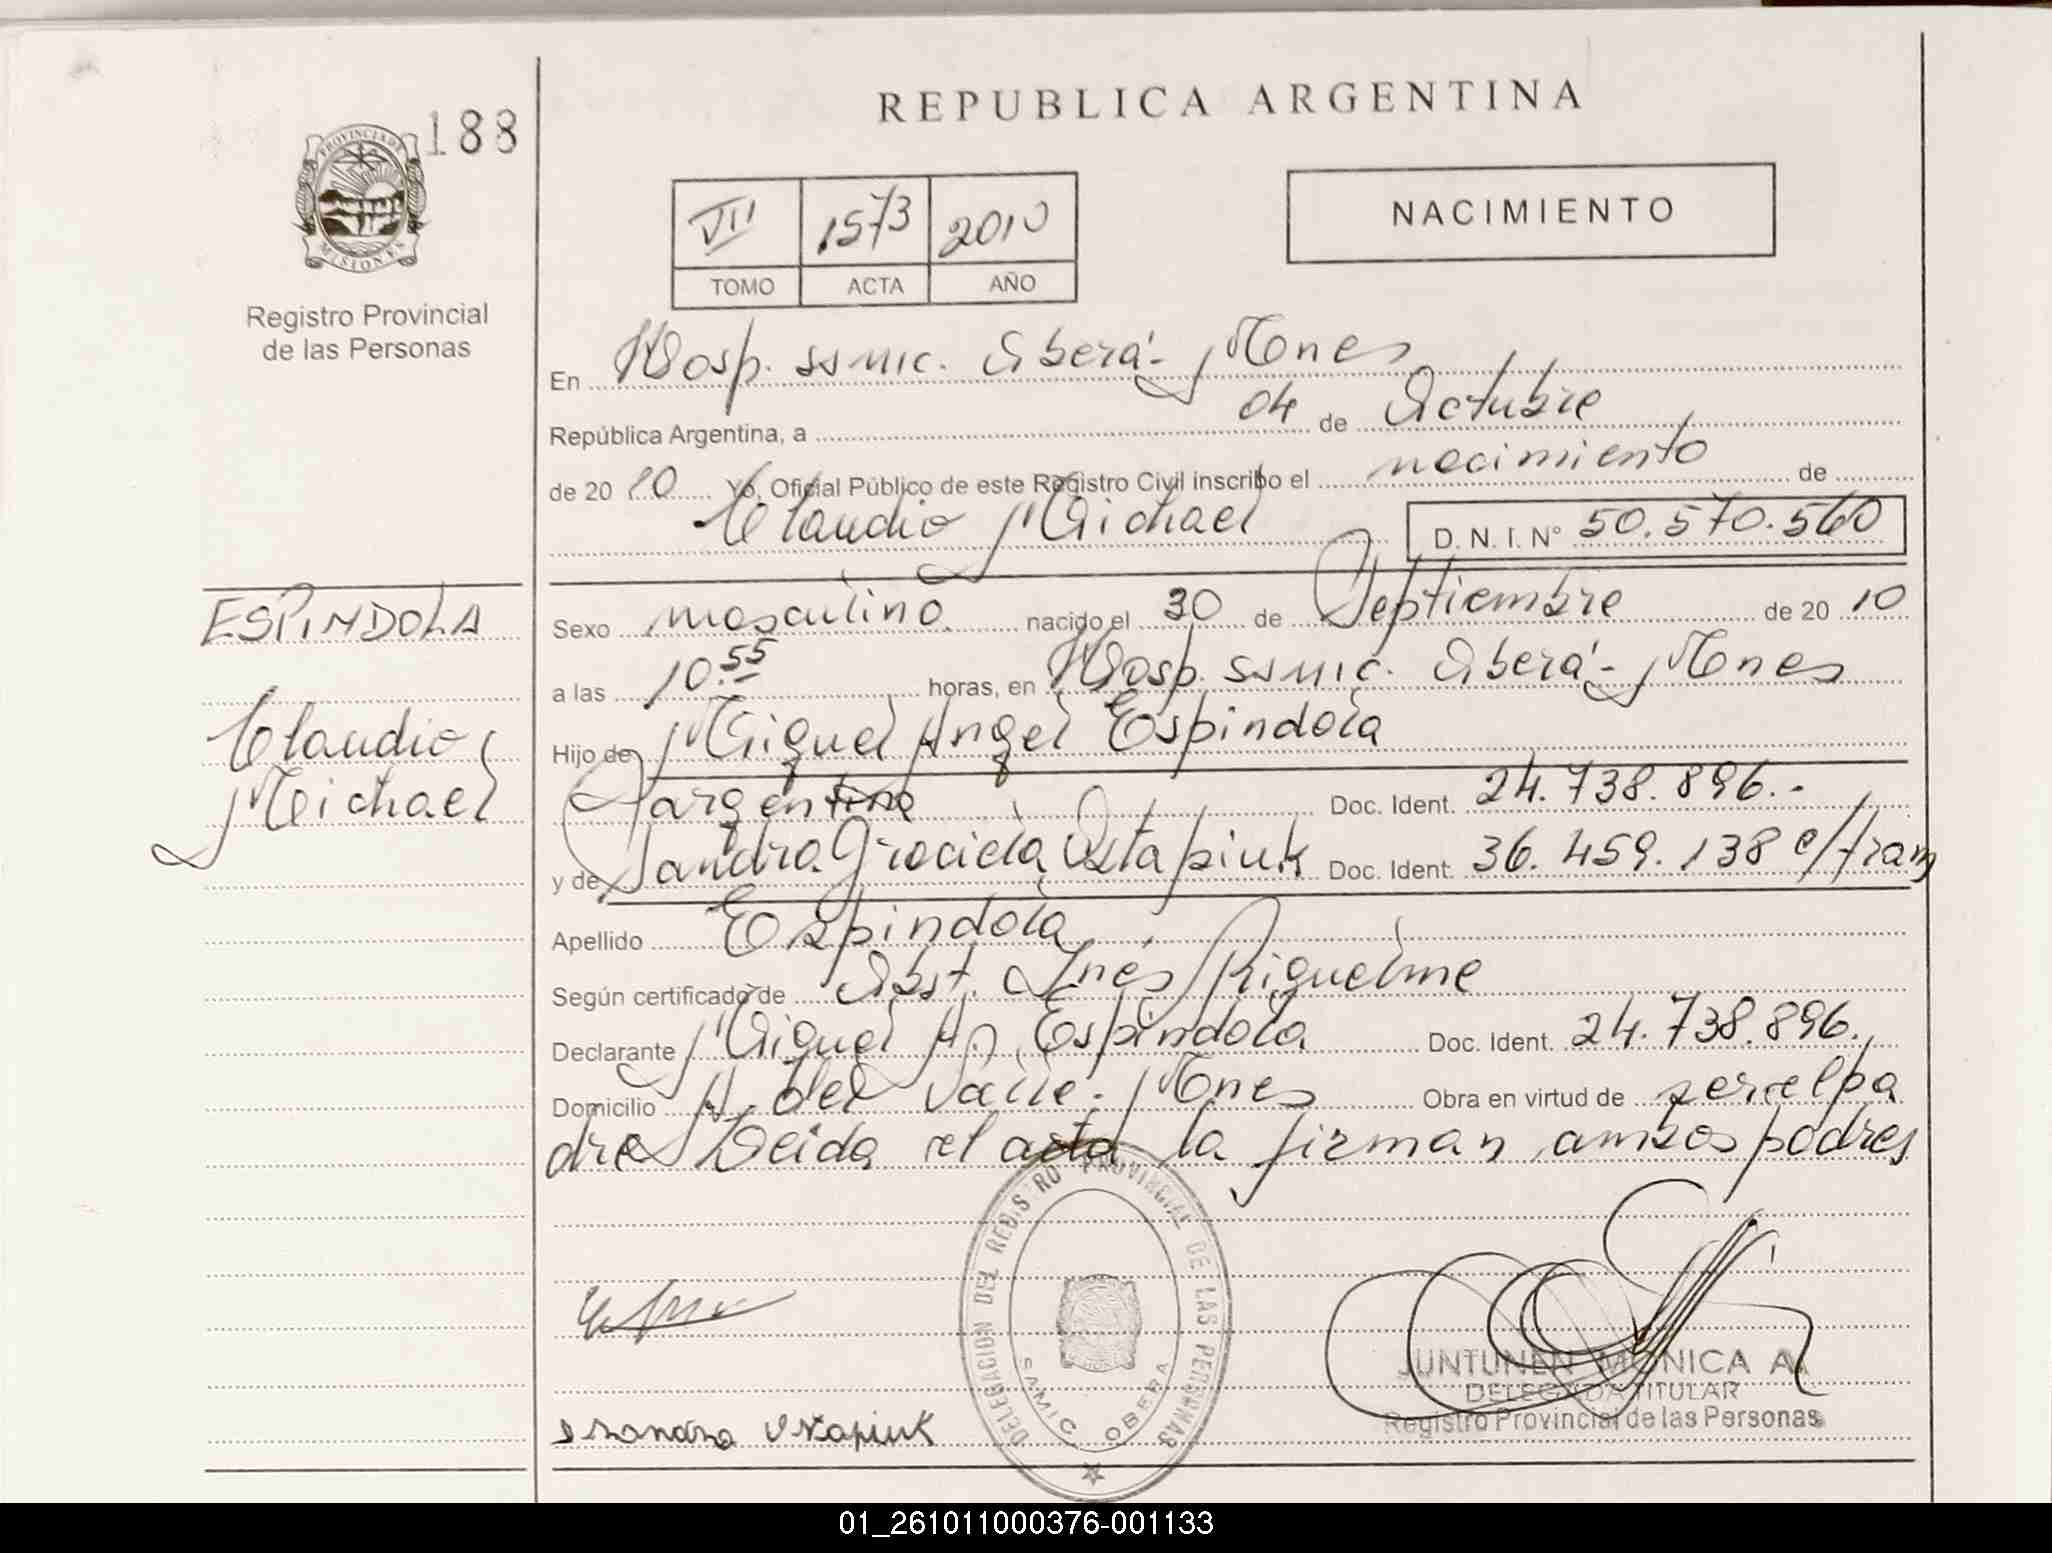 REPUBLICA ARGENTINA
188
PROVINCIA DE
MISIONES
Registro Provincial
de las Personas
VII 1573 2010
TOMO ACTA AÑO
NACIMIENTO
En Hosp. SSMIC. Oberá - Mnes
República Argentina, a 04 de Octubre
de 20 10 Yo, Oficial Público de este Registro Civil inscribo el nacimiento de
Claudio Michael D. N. I. Nº 50.570.560
ESPINDOLA
Claudio
Michael
Sexo masculino nacido el 30 de Septiembre de 20 10
a las 10.55 horas, en Hosp. SSMIC. Oberá - Mnes
Hijo de Miguel Angel Espindola
argentino Doc. Ident. 24.738.896.-
y de Sandra Graciela Ostapiuk Doc. Ident. 36.459.138 e/tram
Apellido Espindola
Según certificado de Obst. Inés Riquelme
Declarante Miguel A. Espindola Doc. Ident. 24.738.896.
Domicilio A. del Valle - Mnes Obra en virtud de ser el pa
dre Leida el acta la firman ambos padres
DELEGACION DEL REGISTRO PROVINCIAL DE LAS PERSONAS
SAMIC OBERA
Sandra Ostapiuk
JUNTUNEN MONICA A.
DELEGADA TITULAR
Registro Provincial de las Personas
01_261011000376-001133